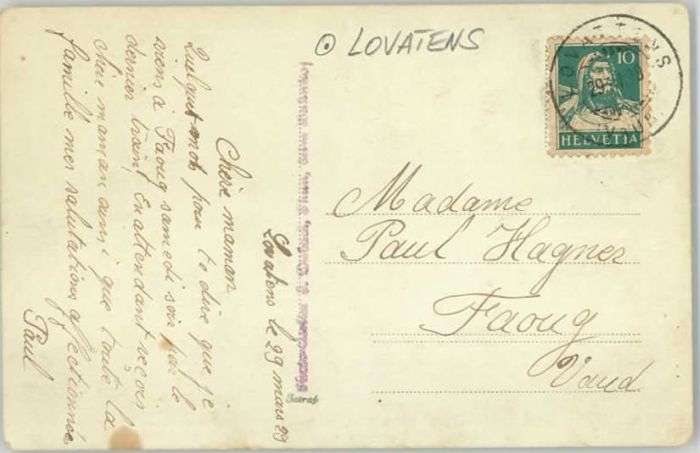 ⊙ LOVATENS
10
HELVETIA
LOVATENS
29
Lovatens le 29 mars 29
Chère maman
Quelques mots pour te dire que je
viens à Faoug samedi soir par le
dernier train, En attendant reçois
chère maman ainsi que toute la
famille mes salutations affectionnée
Paul
Madame
Paul Hagner
Faoug
Vaud